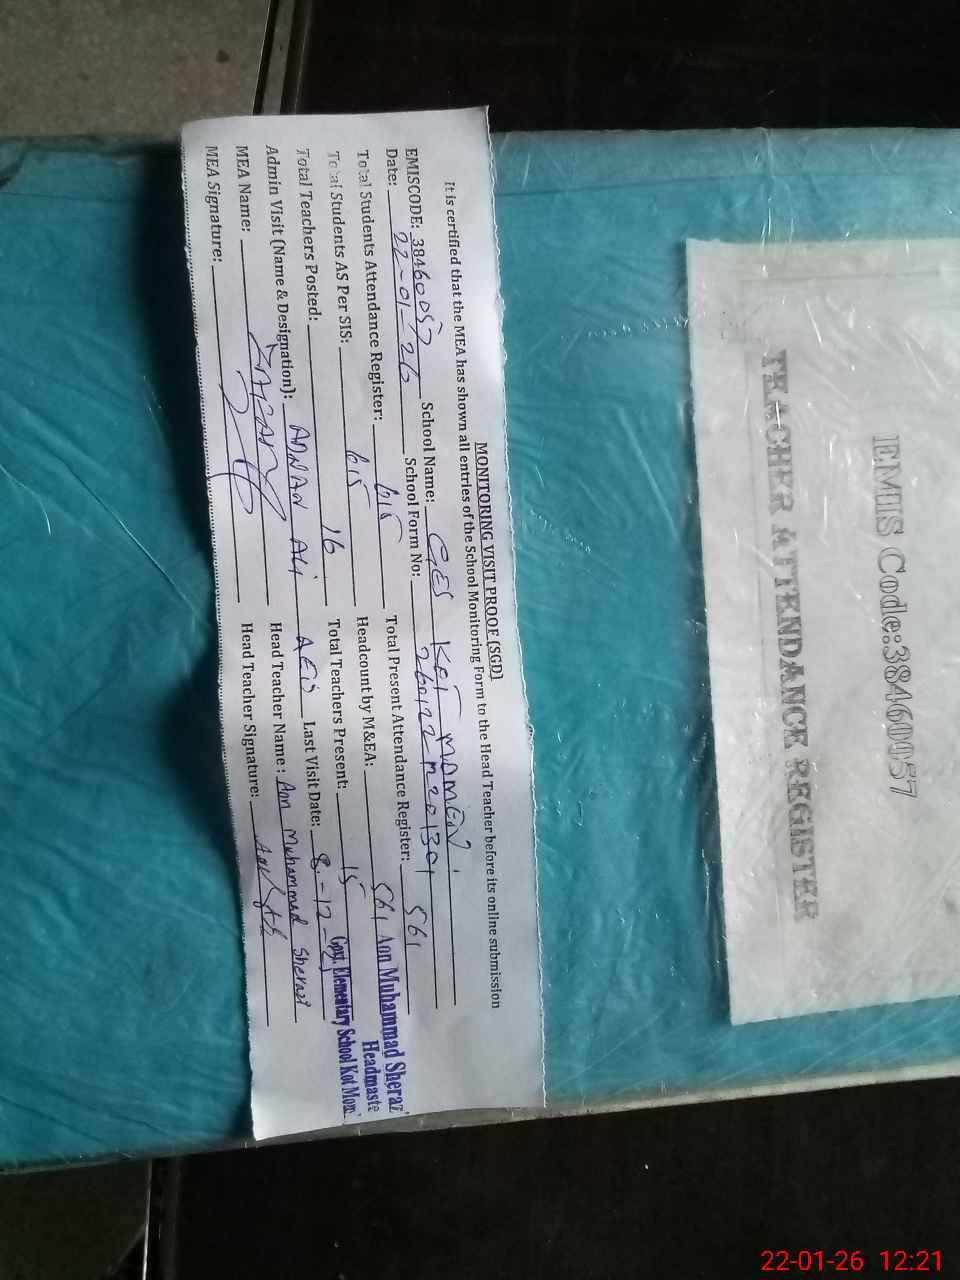 MONITORING VISIT PROOF (SGD)
It is certified that the MEA has shown all entries of the School Monitoring Form to the Head Teacher before its online submission
EMISCODE: 38460057 School Name: GES KOT MOMEN
Date: 22-01-26 School Form No: 260122-M201301
Total Students Attendance Register: 615 Total Present Attendance Register: 561
Total Students AS Per SIS: 615 Headcount by M&EA: 561
Total Teachers Posted: 16 Total Teachers Present: 15
Admin Visit (Name & Designation): ADNAN ALI AEO Last Visit Date: 8-12-
MEA Name: Head Teacher Name: Aon Muhammad Sherazi
MEA Signature: Head Teacher Signature:
Aon Muhammad Sheraz
Headmaste
Govt. Elementary School Kot Mom
EMIS Code:38460057
TEACHER ATTENDANCE REGISTER
22-01-26 12:21